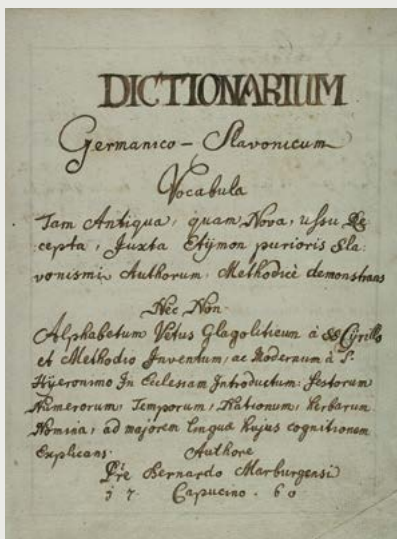 DICTIONARIUM
Germanico - Slavonicum
Vocabula
Tam Antiqua, quam Nova, ussu Re
cepta, Juxta Etÿmon purioris Sla:
vonismi Authorum, Methodicè demonstrans
Nec Non.
Alphabetum Vetus Glagoliticum à SS Cÿrillo
et Methodio Inventum, ac Modernum à S.
Hÿeronimo In Eclesiam Introductum: Festorum
Numerorum, Temporum, Nationum, Herbarum
Nomina, ad majorem Linguæ hujus cognitionem
Explicans. Authore
Pre Bernardo Marburgensi
17. Capucino. 60